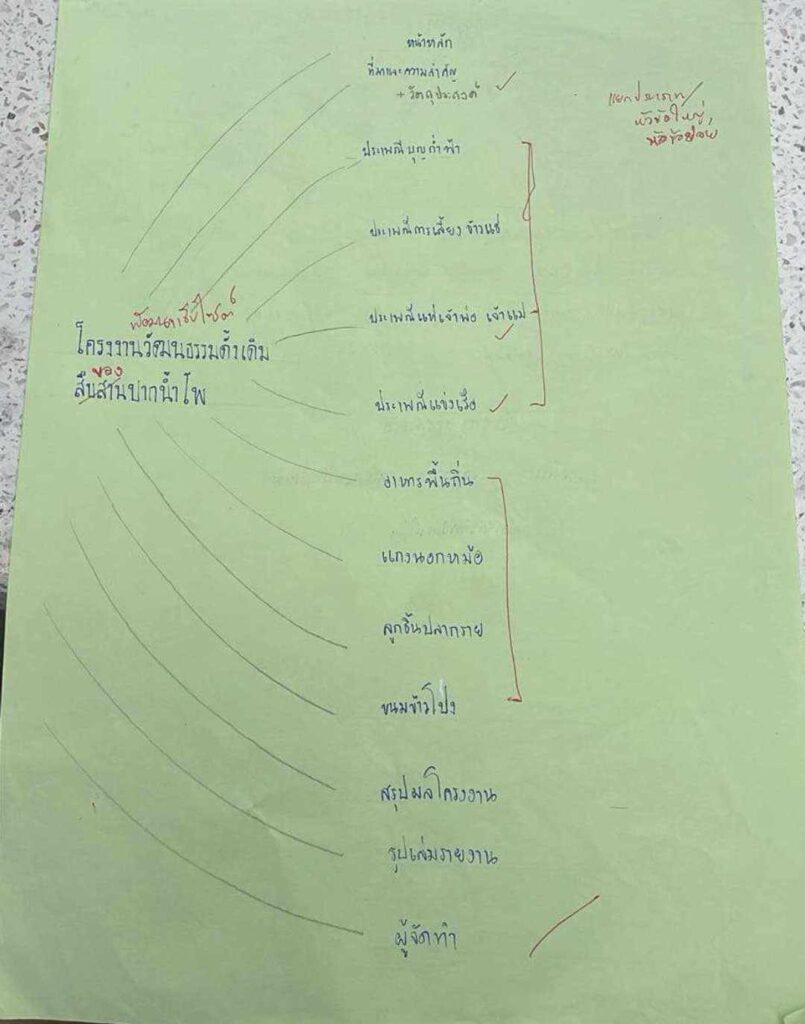 หน้าหลัก
ที่มาและความสำคัญ
+ วัตถุประสงค์
แยกประเภท/
หัวข้อใหญ่,
หัวข้อย่อย
ประเพณีบุญกำฟ้า
ประเพณีการเลี้ยงข้าวแช่
พัฒนาเว็บไซต์
ประเพณีแห่เจ้าพ่อ เจ้าแม่
โครงงานวัฒนธรรมดั้งเดิม
ของ
สืบสานปากน้ำโพ
ประเพณีแข่งเรือ
อาหารพื้นถิ่น
แกงนอกหม้อ
ลูกชิ้นปลากราย
ขนมข้าวโปง
สรุปผลโครงงาน
รูปเล่มรายงาน
ผู้จัดทำ